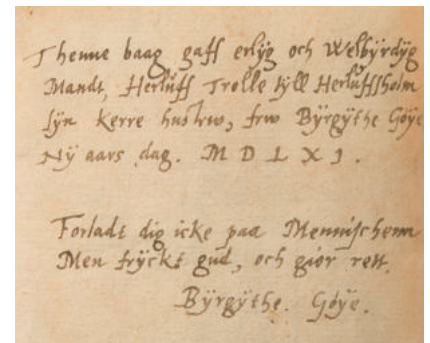 Thenne baag gaff erlÿg och Welbÿrdÿg
Mandt, Herluff Trolle tyll Herluffsholm
sÿn kerre hustrw, frw Bÿrgÿthe Gøÿe
Nÿ aars dag. M D L X I.
Forladt dig icke paa Mennischenn
Men frÿckt gud, och giør rett.
Bÿrgÿthe. Gøÿe.